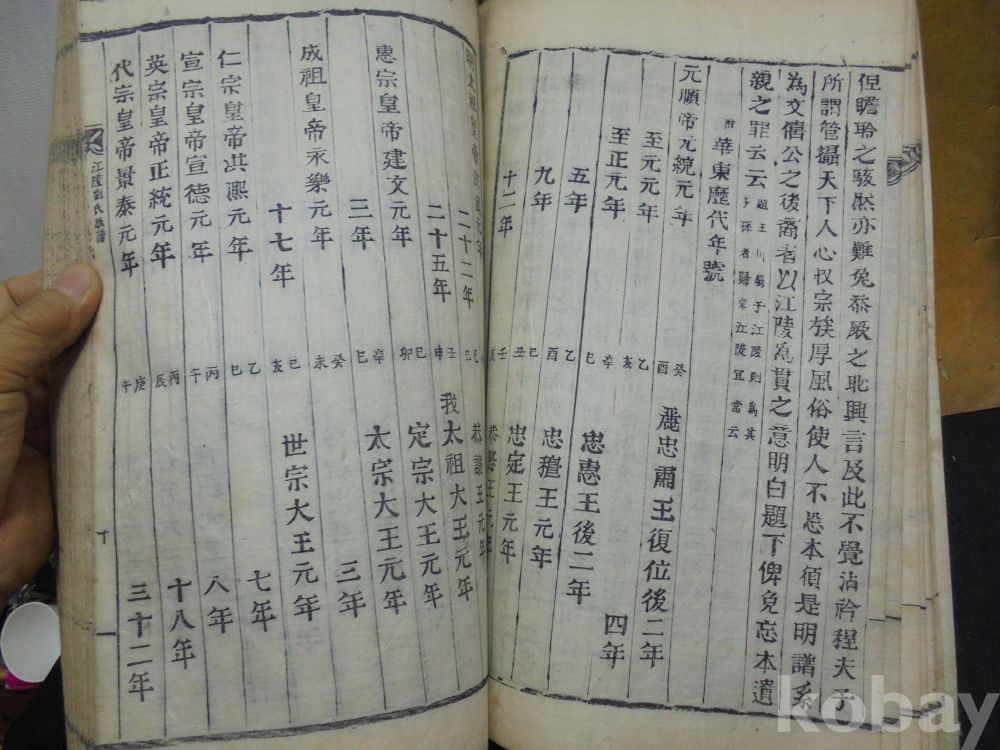 但瞻聆之駭歎亦難免忝厥之耻興言及此不覺沾衿程夫子
所謂管攝天下人心收宗族厚風俗使人不忘本須是明譜系
為文僖公之後裔者以江陵為貫之意明白題下俾免忘本遺
親之罪云云 題玉川屬于江陵則為其
子孫者歸宗江陵宜當云
附 華東歷代年號
元順帝元統元年 癸酉 麗忠肅王復位後二年
至元元年 乙亥 四年
至正元年 辛巳 忠惠王後二年
五年 乙酉 忠穆王元年
九年 己丑 忠定王元年
十二年 壬辰 恭愍王元年
明太祖皇帝洪武元年
二十二年 己巳 恭讓王元年
二十五年 壬申 我太祖大王元年
惠宗皇帝建文元年 己卯 定宗大王元年
三年 辛巳 太宗大王元年
成祖皇帝永樂元年 癸未 三年
十七年 己亥 世宗大王元年
仁宗皇帝洪熙元年 乙巳 七年
宣宗皇帝宣德元年 丙午 八年
英宗皇帝正統元年 丙辰 十八年
代宗皇帝景泰元年 庚午 三十二年
江陵劉氏族譜
十
kobay